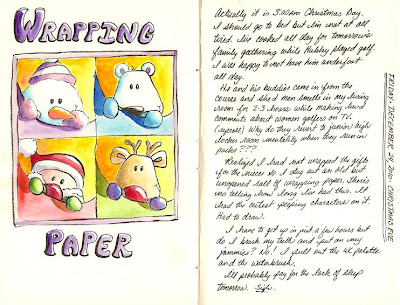 WRAPPING
PAPER
Actually it is 3:00am Christmas Day.
I should go to bed but I'm not at all
tired. I've cooked all day for tomorrow's
family gathering while Hubby played golf.
I was happy to not have him underfoot
all day.
He and his buddies came in from the
course and shed men smells in my living
room for 2-3 hours while making lewd
comments about women golfers on TV.
(eyeroll) Why do they revert to junior high
locker room mentality when they run in
packs???
Realized I had not wrapped the gifts
for the nieces so I dug out an old but
unopened roll of wrapping paper. There's
no telling how long I've had this. It
had the cutest peeping characters on it.
Had to draw.
I have to get up in just a few hours but
do I brush my teeth and put on my
jammies? No! I pull out the wc palette
and the waterbrush.
I'll probably pay for the lack of sleep
tomorrow. Sigh.
FRIDAY · DECEMBER 24, 2010 CHRISTMAS EVE